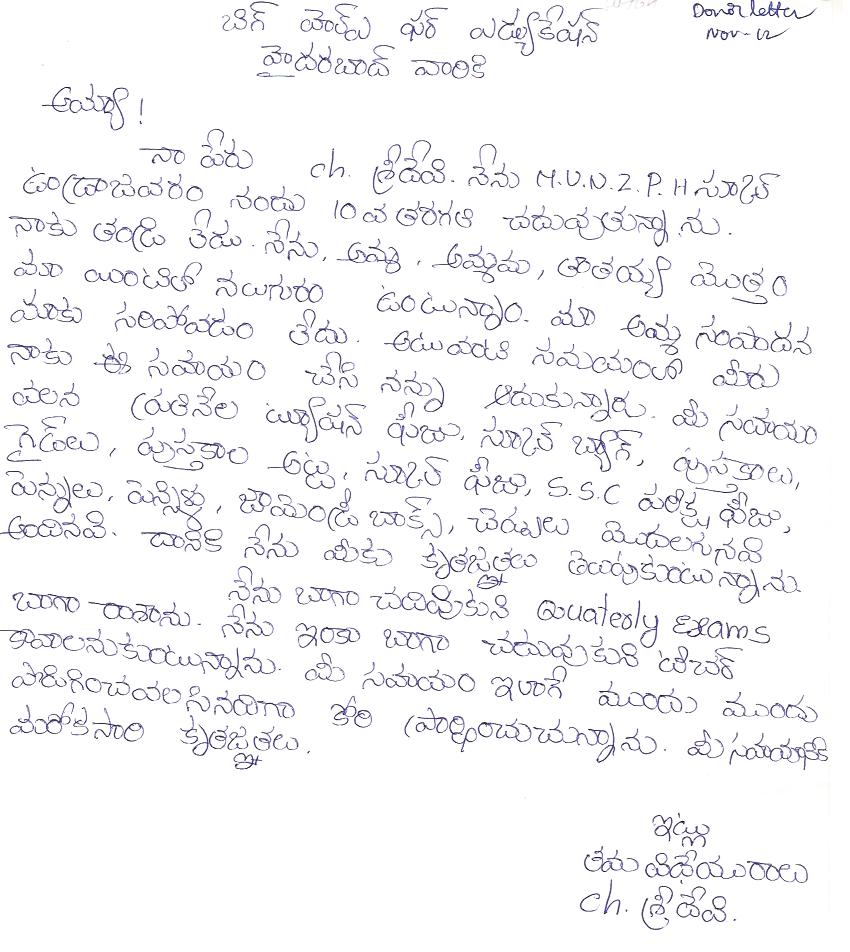 Donor letter
Nov-12
బిగ్ హెల్ప్ ఫర్ ఎడ్యుకేషన్
హైదరబాద్ వారికి
అయ్యా!
నా పేరు ch. శ్రీదేవి. నేను M.V.N.Z.P.H స్కూల్
ఉండ్రాజవరం నందు 10వ తరగతి చదువుతున్నాను.
నాకు తండ్రి లేడు. నేను, అమ్మ, అమ్మమ, తాతయ్య మొత్తం
మా యింటిలో నలుగురం ఉంటున్నాం. మా అమ్మ సంపాదన
మాకు సరిపోవడం లేదు. అటువంటి సమయంలో మీరు
నాకు ఈ సహాయం చేసి నన్ను ఆదుకున్నారు. మీ సహాయం
వలన ప్రతినెల ట్యూషన్ ఫీజు, స్కూల్ బ్యాగ్, పుస్తకాలు,
గైడ్‌లు, పుస్తకాల అట్ట, స్కూల్ ఫీజు, S.S.C పరీక్ష ఫీజు,
పెన్నులు, పెన్సిళ్లు, జామెంట్రీ బాక్స్, చెప్పులు మొదలగునవి
అందినవి. దానికి నేను మీకు కృతజ్ఞతలు తెలుపుకుంటున్నాను.
నేను బాగా చదివుకుని Quaterly Exams
బాగా రాశాను. నేను ఇంకా బాగా చదువుకుని టీచర్
కావాలనుకుంటున్నాను. మీ సహాయం ఇలాగే ముందు ముందు
జరిగించవలసినదిగా కోరి ప్రార్థించుచున్నాను. మీ సహాయానికి
మరోకసారి కృతజ్ఞతలు.
ఇట్లు
తమ విధేయురాలు
ch. శ్రీదేవి.